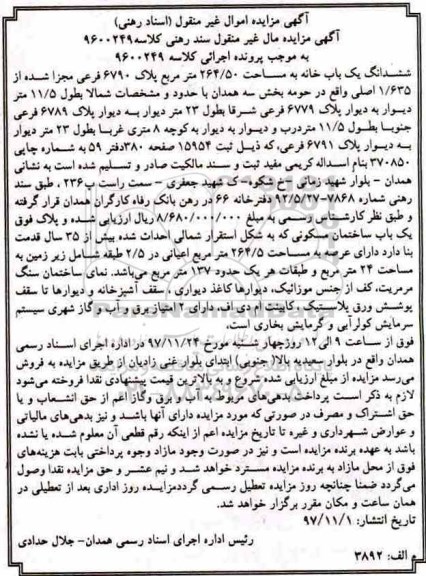 آگهی مزایده اموال غیر منقول (اسناد رهنی)
آگهی مزایده مال غیر منقول سند رهنی کلاسه۹۶۰۰۲۴۹
به موجب پرونده اجرائی کلاسه ۹۶۰۰۲۴۹
ششدانگ یک باب خانه به مساحت ۲۶۴/۵۰ متر مربع پلاک ۶۷۹۰ فرعی مجزا شده از
۱/۶۳۵ اصلی واقع در حومه بخش سه همدان با حدود و مشخصات شمالا بطول ۱۱/۵ متر
دیوار به دیوار پلاک ۶۷۷۹ فرعی شرقا بطول ۲۳ متر دیوار به دیوار پلاک ۶۷۸۹ فرعی
جنوبا بطول ۱۱/۵ متردرب و دیوار به دیوار به کوچه ۸ متری غربا بطول ۲۳ متر دیوار
به دیوار پلاک ۶۷۹۱ فرعی، که ذیل ثبت ۱۵۹۵۴ صفحه ۳۸۰دفتر ۵۹ به شماره چاپی
۳۷۰۸۵۰ بنام اسداله کریمی مفید ثبت و سند مالکیت صادر و تسلیم شده است به نشانی
همدان - بلوار شهید زمانی - خ شکوه-ک شهید جعفری - سمت راست پ۲۳۶ ، طبق سند
رهنی شماره ۷۸۶۸-۹۲/۵/۲۷ دفترخانه ۶۶ در رهن بانک رفاه کارگران همدان قرار گرفته
و طبق نظر کارشناس رسمی به مبلغ ۸/۶۸۰/۰۰۰/۰۰۰ ریال ارزیابی شده و پلاک فوق
یک باب ساختمان مسکونی که به شکل استقرار شمالی احداث شده بیش از ۳۵ سال قدمت
بنا دارد دارای عرصه به مساحت ۲۶۴/۵ متر مربع اعیانی در ۲/۵ طبقه شامل زیر زمین به
مساحت ۲۴ متر مربع و طبقات هر یک حدود ۱۳۷ متر مربع می‌باشد. نمای ساختمان سنگ
مرمریت، کف از جنس موزائیک، دیوارها کاغذ دیواری، سقف آشپزخانه و دیوارها تا سقف
پوشش ورق پلاستیک، کابینت ام دی اف، دارای ۲ امتیاز برق و آب و گاز شهری سیستم
سرمایش کولرآبی و گرمایش بخاری است،
فوق از ساعت ۹ الی ۱۲ روزچهار شنبه مورخ ۹۷/۱۱/۲۴ در اداره اجرای اسناد رسمی
همدان واقع در بلوار سعیدیه بالا( جنوبی) ابتدای بلوار غنی زادیان از طریق مزایده به فروش
می‌رسد مزایده از مبلغ ارزیابی شده شروع و به بالاترین قیمت پیشنهادی نقدا فروخته می‌شود
لازم به ذکر است پرداخت بدهی‌های مربوط به آب، برق وگاز اعم از حق انشعاب و یا
حق اشتراک و مصرف در صورتی که مورد مزایده دارای آنها باشد و نیز بدهی‌های مالیاتی
و عوارض شهرداری و غیره تا تاریخ مزایده اعم از اینکه رقم قطعی آن معلوم شده یا نشده
باشد به عهده برنده مزایده است و نیز در صورت وجود مازاد وجوه پرداختی بابت هزینه‌های
فوق از محل مازاد به برنده مزایده مسترد خواهد شد و نیم عشر و حق مزایده نقدا وصول
می‌گردد ضمنا چنانچه روز مزایده تعطیل رسمی گرددمزایده روز اداری بعد از تعطیلی در
همان ساعت و مکان مقرر برگزار خواهد شد.
تاریخ انتشار: ۹۷/۱۱/۱
رئیس اداره اجرای اسناد رسمی همدان- جلال حدادی
م الف: ۳۸۹۲